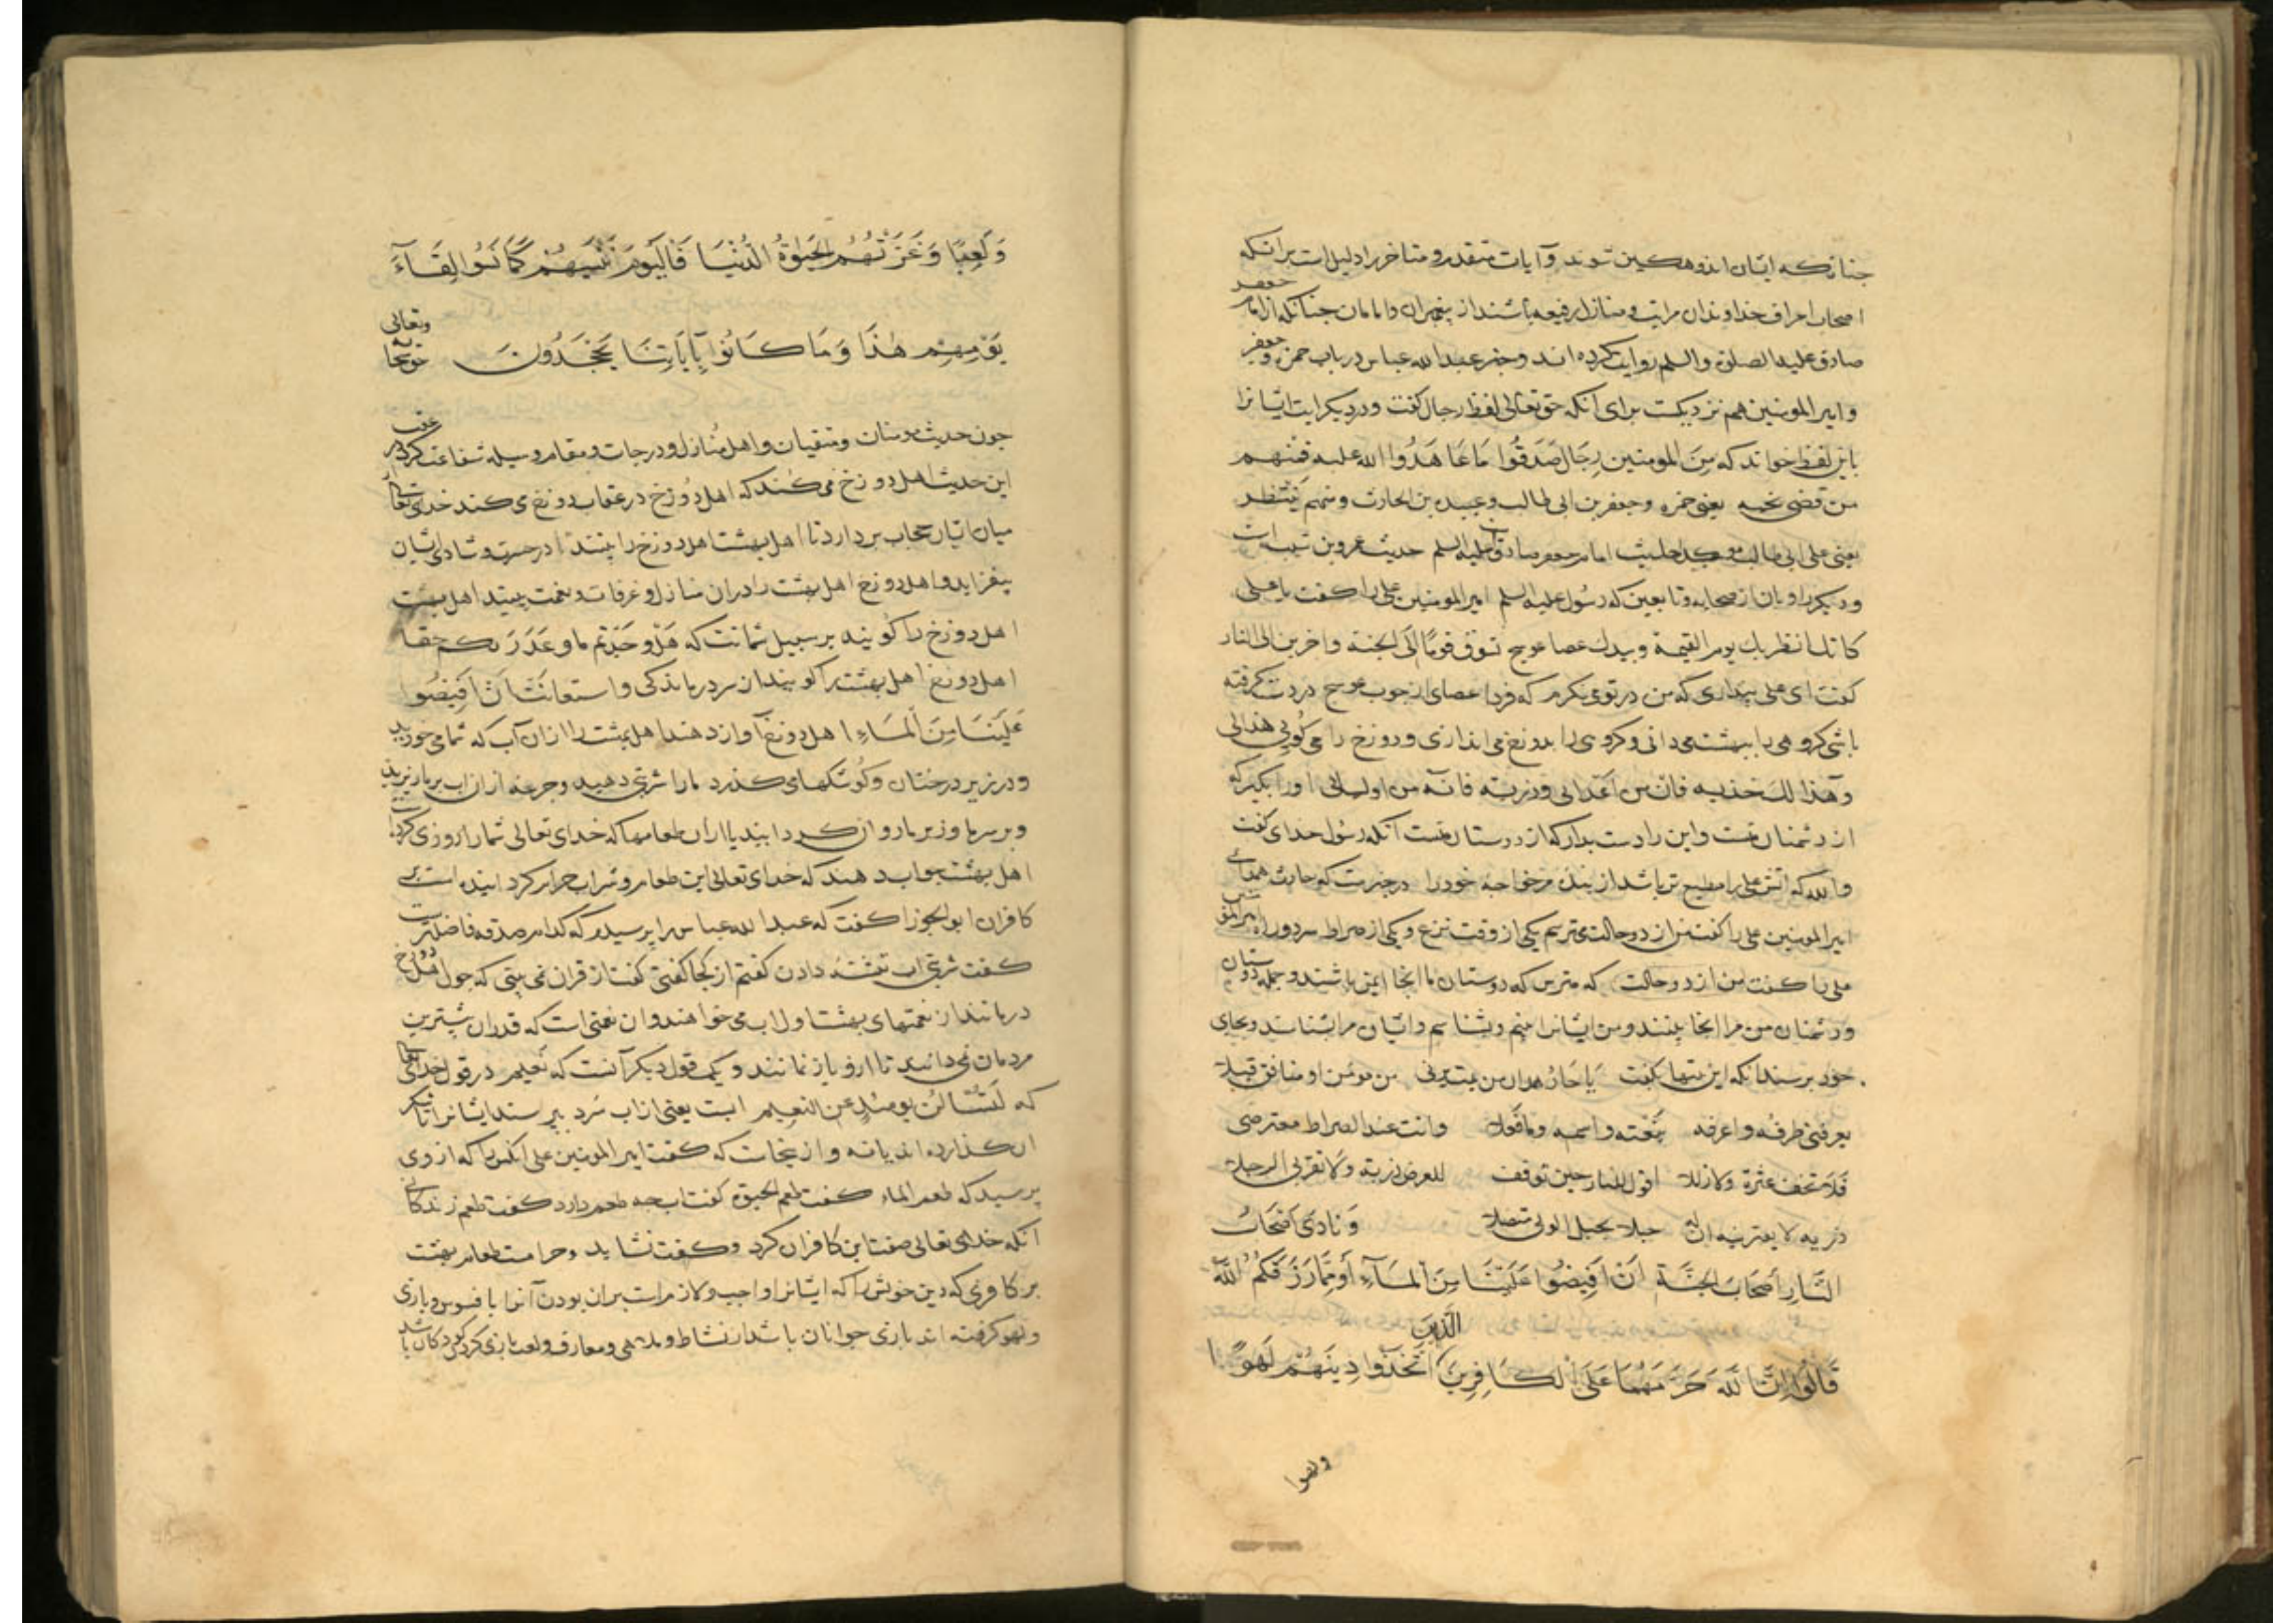 چنانکه ایشان اندوهکین شوند و آیات متقدم و متاخر را دلیل است برانکه
اصحاب اعراف خداوندان مراتب و منازل رفیعه باشند از پیغمبران و امامان چنانکه از امام جعفر
صادق علیه الصلوة والسلم روایت کرده اند و خبر عبدالله عباس در باب حمزه و جعفر
و امیر المومنین هم نزدیکست برای آنکه حق تعالی لفظ رجال کفت و در دیکر ایت ایشانرا
باین لفظ خواند که مِنَ المومنین رِجَال صَدَقُوا مَا عَاهَدُوا الله علیه فَمنهم
من قضی نحبه یعنی حمزه و جعفر بن ابی طالب و عبیده بن الحارث و منهم یَنتظر
یعنی علی ابی طالب امام جعفر صادق علیه السلم حدیث عمرو بن است
و دیکر راویان از صحابه و تابعین که رسُول علیه السلم امیر المومنین علی را کفت یا علی
کانک انظر بک یوم القیمة و بیدک عصا عوسج تسوق قومًا الی الجنة واخرین الی النار
کفت ای علی پنداری که من در تو می نکرم که فردا عصای از چوب عوسج در دست کرفته
باشی کروهی را ببهشت می رانی و کروهی را بدوزخ می اندازی و دوزخ را می کویی هذا لی
وهذا لک خذیه فانه من اعدائی وذریه فانه من اولیائی او را بکیر که
از دشمنان منست و این را دست بدار که از دوستان منست آنکه رسُول خدای کفت
والله که آتش علی را مطیع تر باشد از بنده مر خواجه خود را در خبرست که حارث همدانی
امیر المومنین علی را کفت من از دو حالت می ترسم یکی از وقت نزع و یکی از صراط
علی را کفت من از دو حالت که مترس که دوستان ما انجا ایمن باشند و جمله دوستان
و دشمنان من مرا انجا بینند و من ایشانرا بینم و بشناسم و ایشان مرا بشناسند و بجای
خود برسند انکه این بیتها بکفت یا حار همدان من یمت یرنی من مومن او منافق قبلا
یعرفنی طرفُه واعرفه بنعته واسمه وما فعلا وانت عند الصراط معترضی
فلا تخف عثرة ولا زللا اقول للنار حین توقف للعرض ذریه ولا تقربی الرجلا
ذریه لا تقربیه ان له حبلا بحبل الوصی متصلا وَنَادَی اَصْحَابُ
النَّارِ اَصْحَابَ الجَنَّةِ اَنْ اَفِیضُوا عَلَیْنَا مِنَ الْمَآءِ اَوْ مِمَّا رَزَقَکُمُ اللّٰهُ
قَالُوا اِنَّ اللّٰهَ حَرَّمَهُمَا عَلَی الْکَافِرِینَ الَّذِینَ اتَّخَذُوا دِینَهُمْ لَهْوًا
ولعبا
وَلَعِبًا وَغَرَّتْهُمُ الحَیٰوةُ الدُّنْیَا فَالْیَوْمَ نَنْسٰیهُمْ کَمَا نَسُوا لِقَآءَ
یَوْمِهِمْ هٰذَا وَمَا کَانُوا بِآیَاتِنَا یَجْحَدُونَ حق سبحانه وتعالی
چون حدیث مومنان و متقیان و اهل منازل و درجات و مقام و وسیله شفاعت کرد در عقب
این حدیث اهل دوزخ می کند که اهل دوزخ در عقاب دوزخ می کند خدای تعالی
میان ایشان حجاب بردارد تا اهل بهشت اهل دوزخ را بینند تا در مسرت و شادی ایشان
بیفزاید و اهل دوزخ اهل بهشت را دران منازل و غرفات و نعمت بینند اهل بهشت
اهل دوزخ را کویند بر سبیل شماتت که هَلْ وجَدْتم ما وعَدَ رَبکم حقا
اهل دوزخ اهل بهشت را کویند از سر درماندکی و استعانت اَنْ اَفِیضُوا
عَلَیْنَا مِنَ الْمَاءِ اهل دوزخ آواز دهند اهل بهشت را ازان آب که شما می خورید
و در زیر درختان و کوشکها می کذرد ما را شربتی دهید و جرعه ازان اب بر ما ریزید
و بر سر ما و زیر ما روان کردانید یا ازان طعامها که خدای تعالی شما را روزی کرد
اهل بهشت جواب دهند که خدای تعالی این طعام و شراب حرام کردانیده است بر
کافران ابو الجوزا کفت که عبدالله عباس را پرسیدم که کدام صدقه فاضلترست
کفت شربتی اب تشنه دادن کفتم از کجا کفتی کفت از قران نمی بینی که چون اهل دوزخ
درمانند از نعمتهای بهشت اول اب می خواهند و ان نعمتی است که قدر ان بیشترین
مردمان نمی دانند تا ازو باز نمانند و یک قول دیکر آنست که نعیم در قول خدای تعالی
که لَتُسْئَلُنَّ یومئذٍ عن النعیم ابست یعنی از اب سرد بپرسند ایشانرا تا شکر
ان کذارده اند یا نه و از ینجاست که کفت امیر المومنین علی انکس را که از وی
پرسید که طعم الماء کفت طعم الحیوة کفت اب چه طعم دارد کفت طعم زندکانی
آنکه خدای تعالی صفت این کافران کرد و کفت نشاید و حرامست طعام بهشت
بر کافری که دین خویش را که ایشانرا واجب و لازم است بران بودن آنرا بافسوس و بازی
و لهو کرفته اند بازی جوانان باشد از نشاط و ملاهی و معازف و لعب بازی کردن کودکان باشد